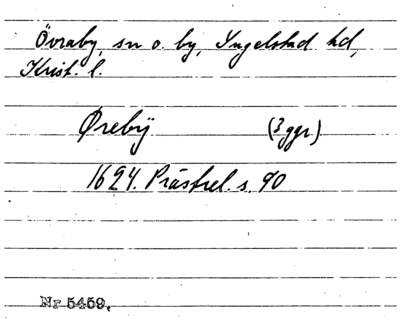 Övraby, sn o. by, Ingelstad hd,
Krist. l.
Øreby̋ (3 ggr)
1624. Prästrel. s. 90
Nr 5459.